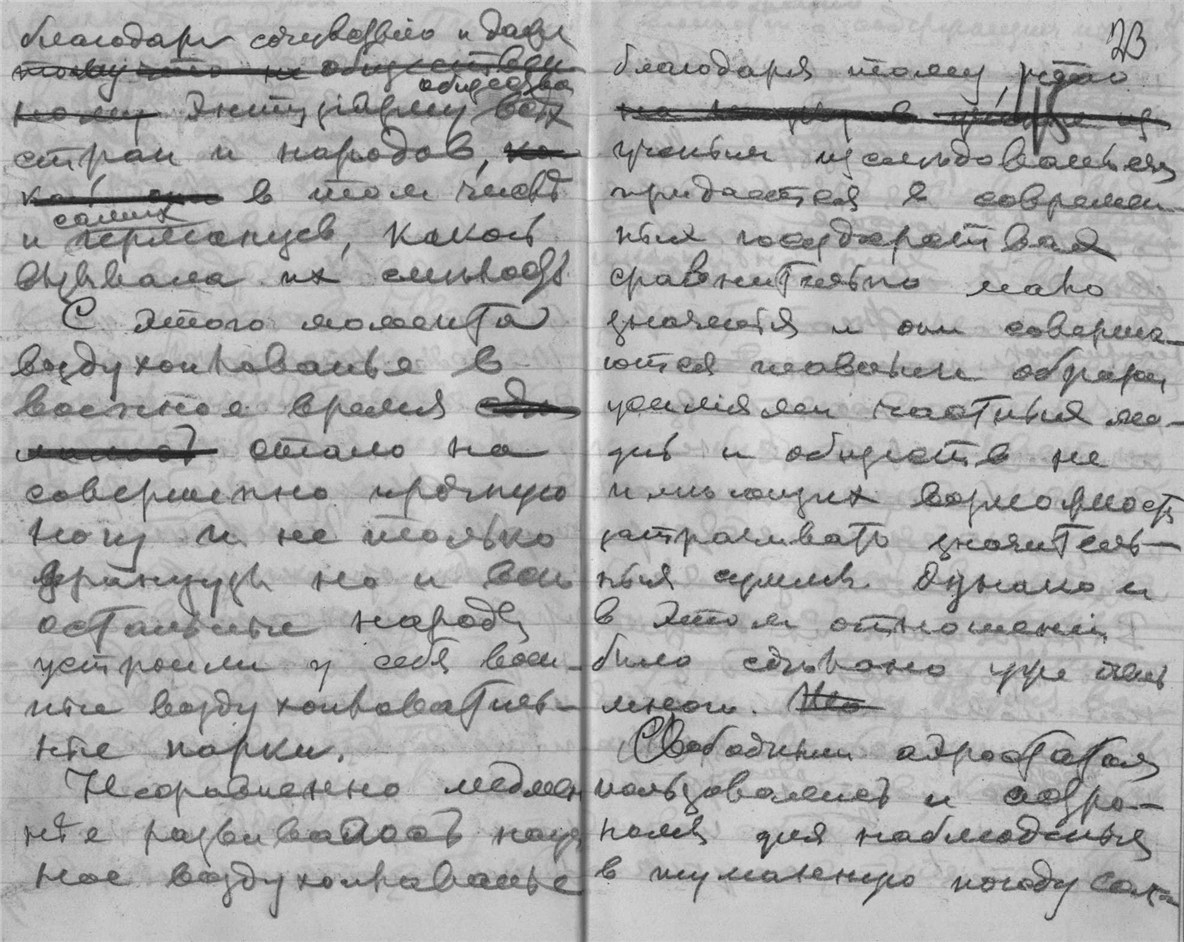 благодаря сочувствію и даже
тому что не обществен
общества
ному Энтузіазму всѣх
стран и народов,
в том числѣ
самих
и германцев, какой
вызывала их смѣлость
С этого момента
воздухоплаванье в
военное время
стало на
совершенно прочную
ногу и не только
французы но и всѣ
остальные народы
устроили у себя воен-
ные воздухоплаватель-
ные парки.
Несравненно медлен
нѣе развивалось науч
ное воздухоплаванье
23
благодаря тому, что
ученым изслѣдованьям
придается в современ-
ных государствах
сравнительно мало
значенія и они соверша-
ются главным образом
усиліями частных ли-
ц и обществ не
имѣющих возможность
затрачивать значитель-
ныя суммы. Однако и
в этом отношеніи
было сдѣлано уже очень
много. Но
Свободными аэростатами
пользовались и аэро-
номы для наблюденья
в туманную погоду